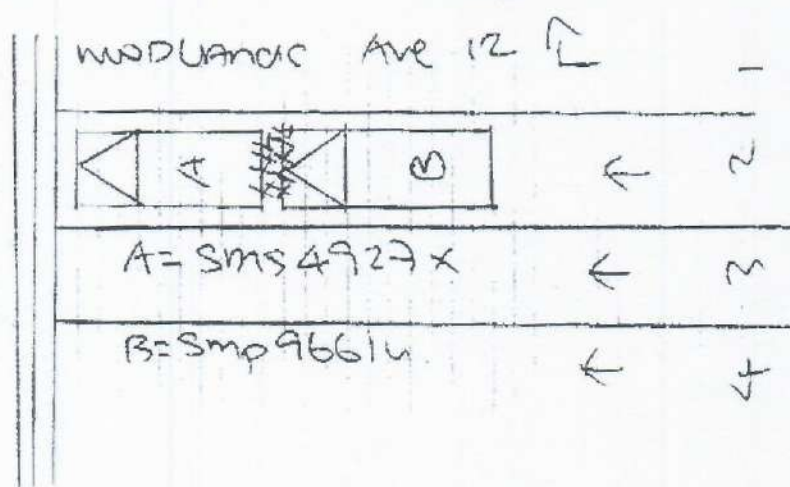 WOODLANDS Ave 12 1
A B 2
A= SMS4927X 3
B= SMP9661U 4